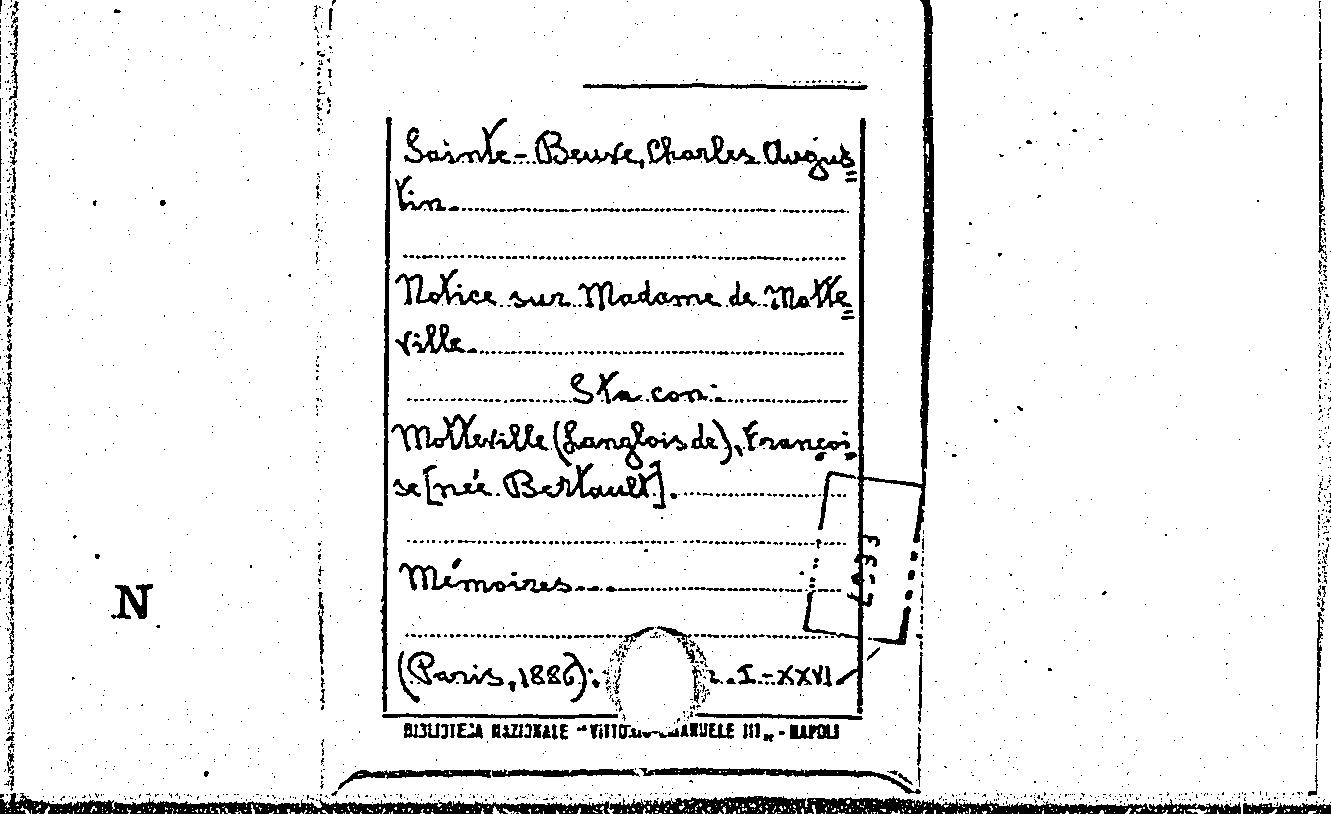 Sainte-Beuve, Charles Augus=
tin.
Notice sur Madame de Motte=
ville.
Sta con:
Motteville (Langlois de), Françoi=
se [née Bertault].
Mémoires...
(Paris, 1886): I-XXVI
N
BIBLIOTECA NAZIONALE "VITTORIO EMANUELE III" - NAPOLI